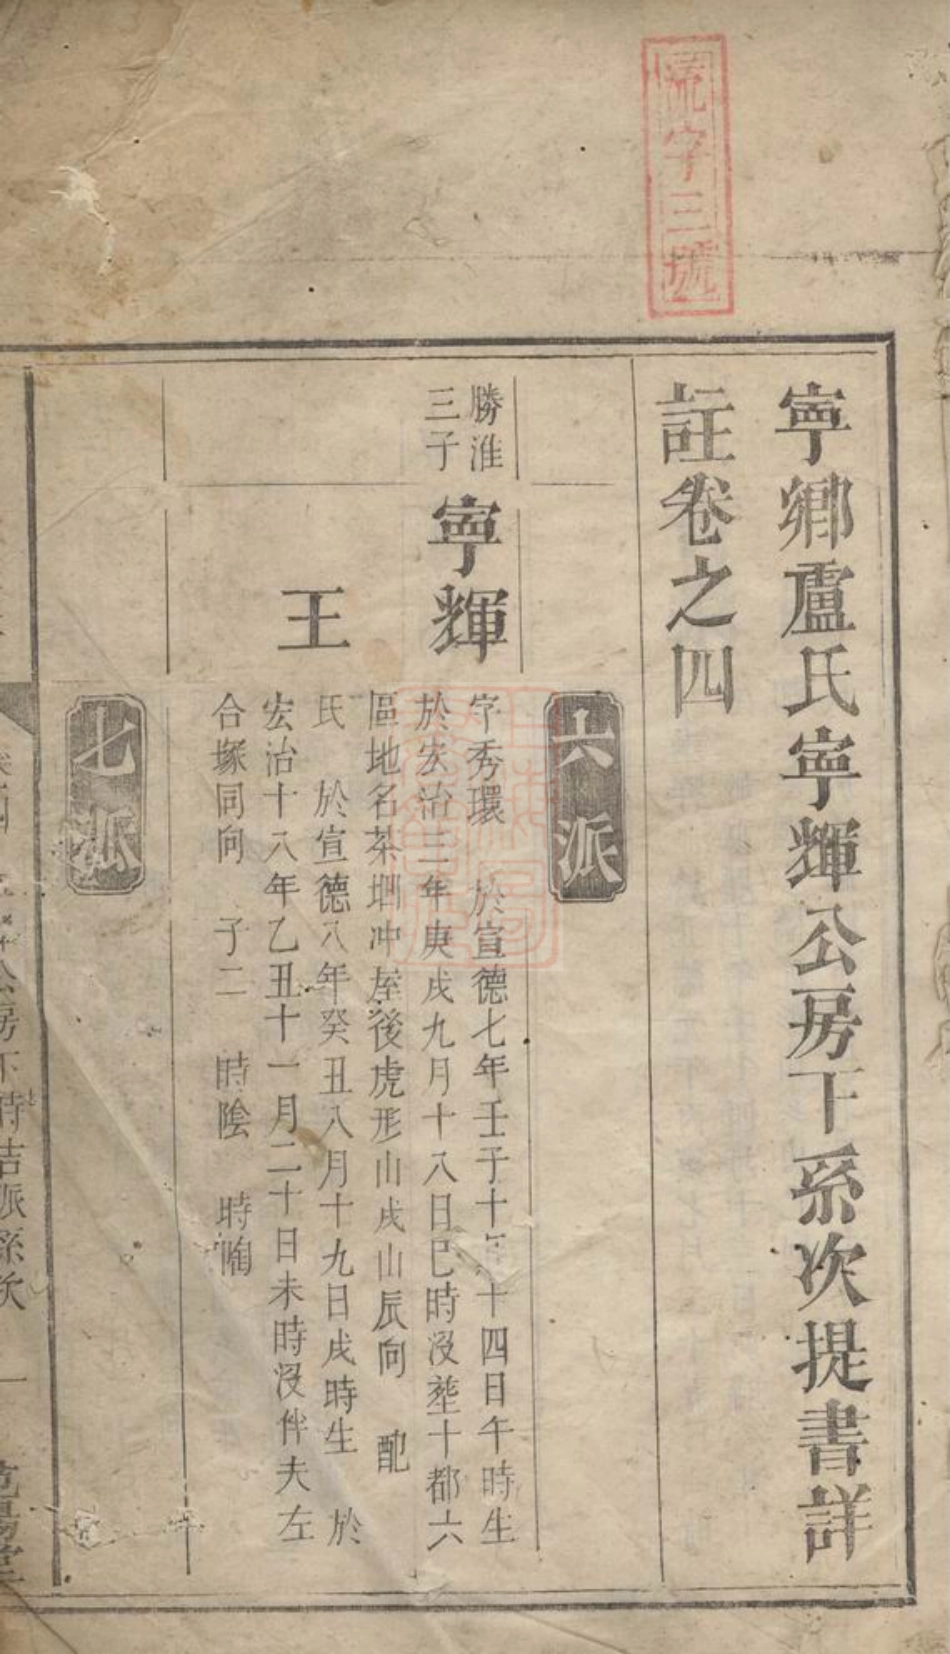 流字三號
寧鄉盧氏寧輝公房下系次提書詳
註卷之四
六派
勝淮
三子
寧輝
字秀環 於宣德七年壬子十年十四日午時生
於宏治三年庚戌九月十八日巳時沒塟十都六
區地名茶圳冲屋後虎形山戌山辰向 配
王
氏 於宣德八年癸丑八月十九日戌時生 於
宏治十八年乙丑十一月二十日未時沒伴夫左
合塚同向 子二 時陰 時陶
七派
公房下時吉派系次 一 范陽堂